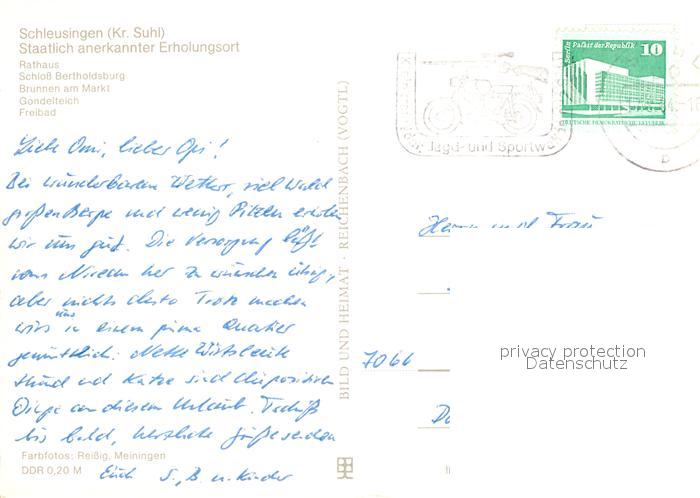 Schleusingen (Kr. Suhl)
Staatlich anerkannter Erholungsort
Rathaus
Schloß Bertholdsburg
Brunnen am Markt
Gondelteich
Freibad
Berlin Palast der Republik 10
DEUTSCHE DEMOKRATISCHE REPUBLIK
Jagd- und Sportwa
Liebe Omi, lieber Opi!
Bei wunderbarem Wetter, viel Wald
großen Berge und wenig Pilzen erholen
wir uns gut. Die Versorgung läßt
vom Niveau her zu wünschen übrig,
aber nichts desto Trotz machen
wirs uns in einem prima Quartier
gemütlich. Nette Wirtsleute
Hund und Katze sind die positiven
Dinge an diesem Urlaub. Tschüß
bis bald, herzliche Grüße senden
Euch S., B. u. Kinder
Herrn und Frau
7066
BILD UND HEIMAT · REICHENBACH (VOGTL)
privacy protection
Datenschutz
Farbfotos: Reißig, Meiningen
DDR 0,20 M